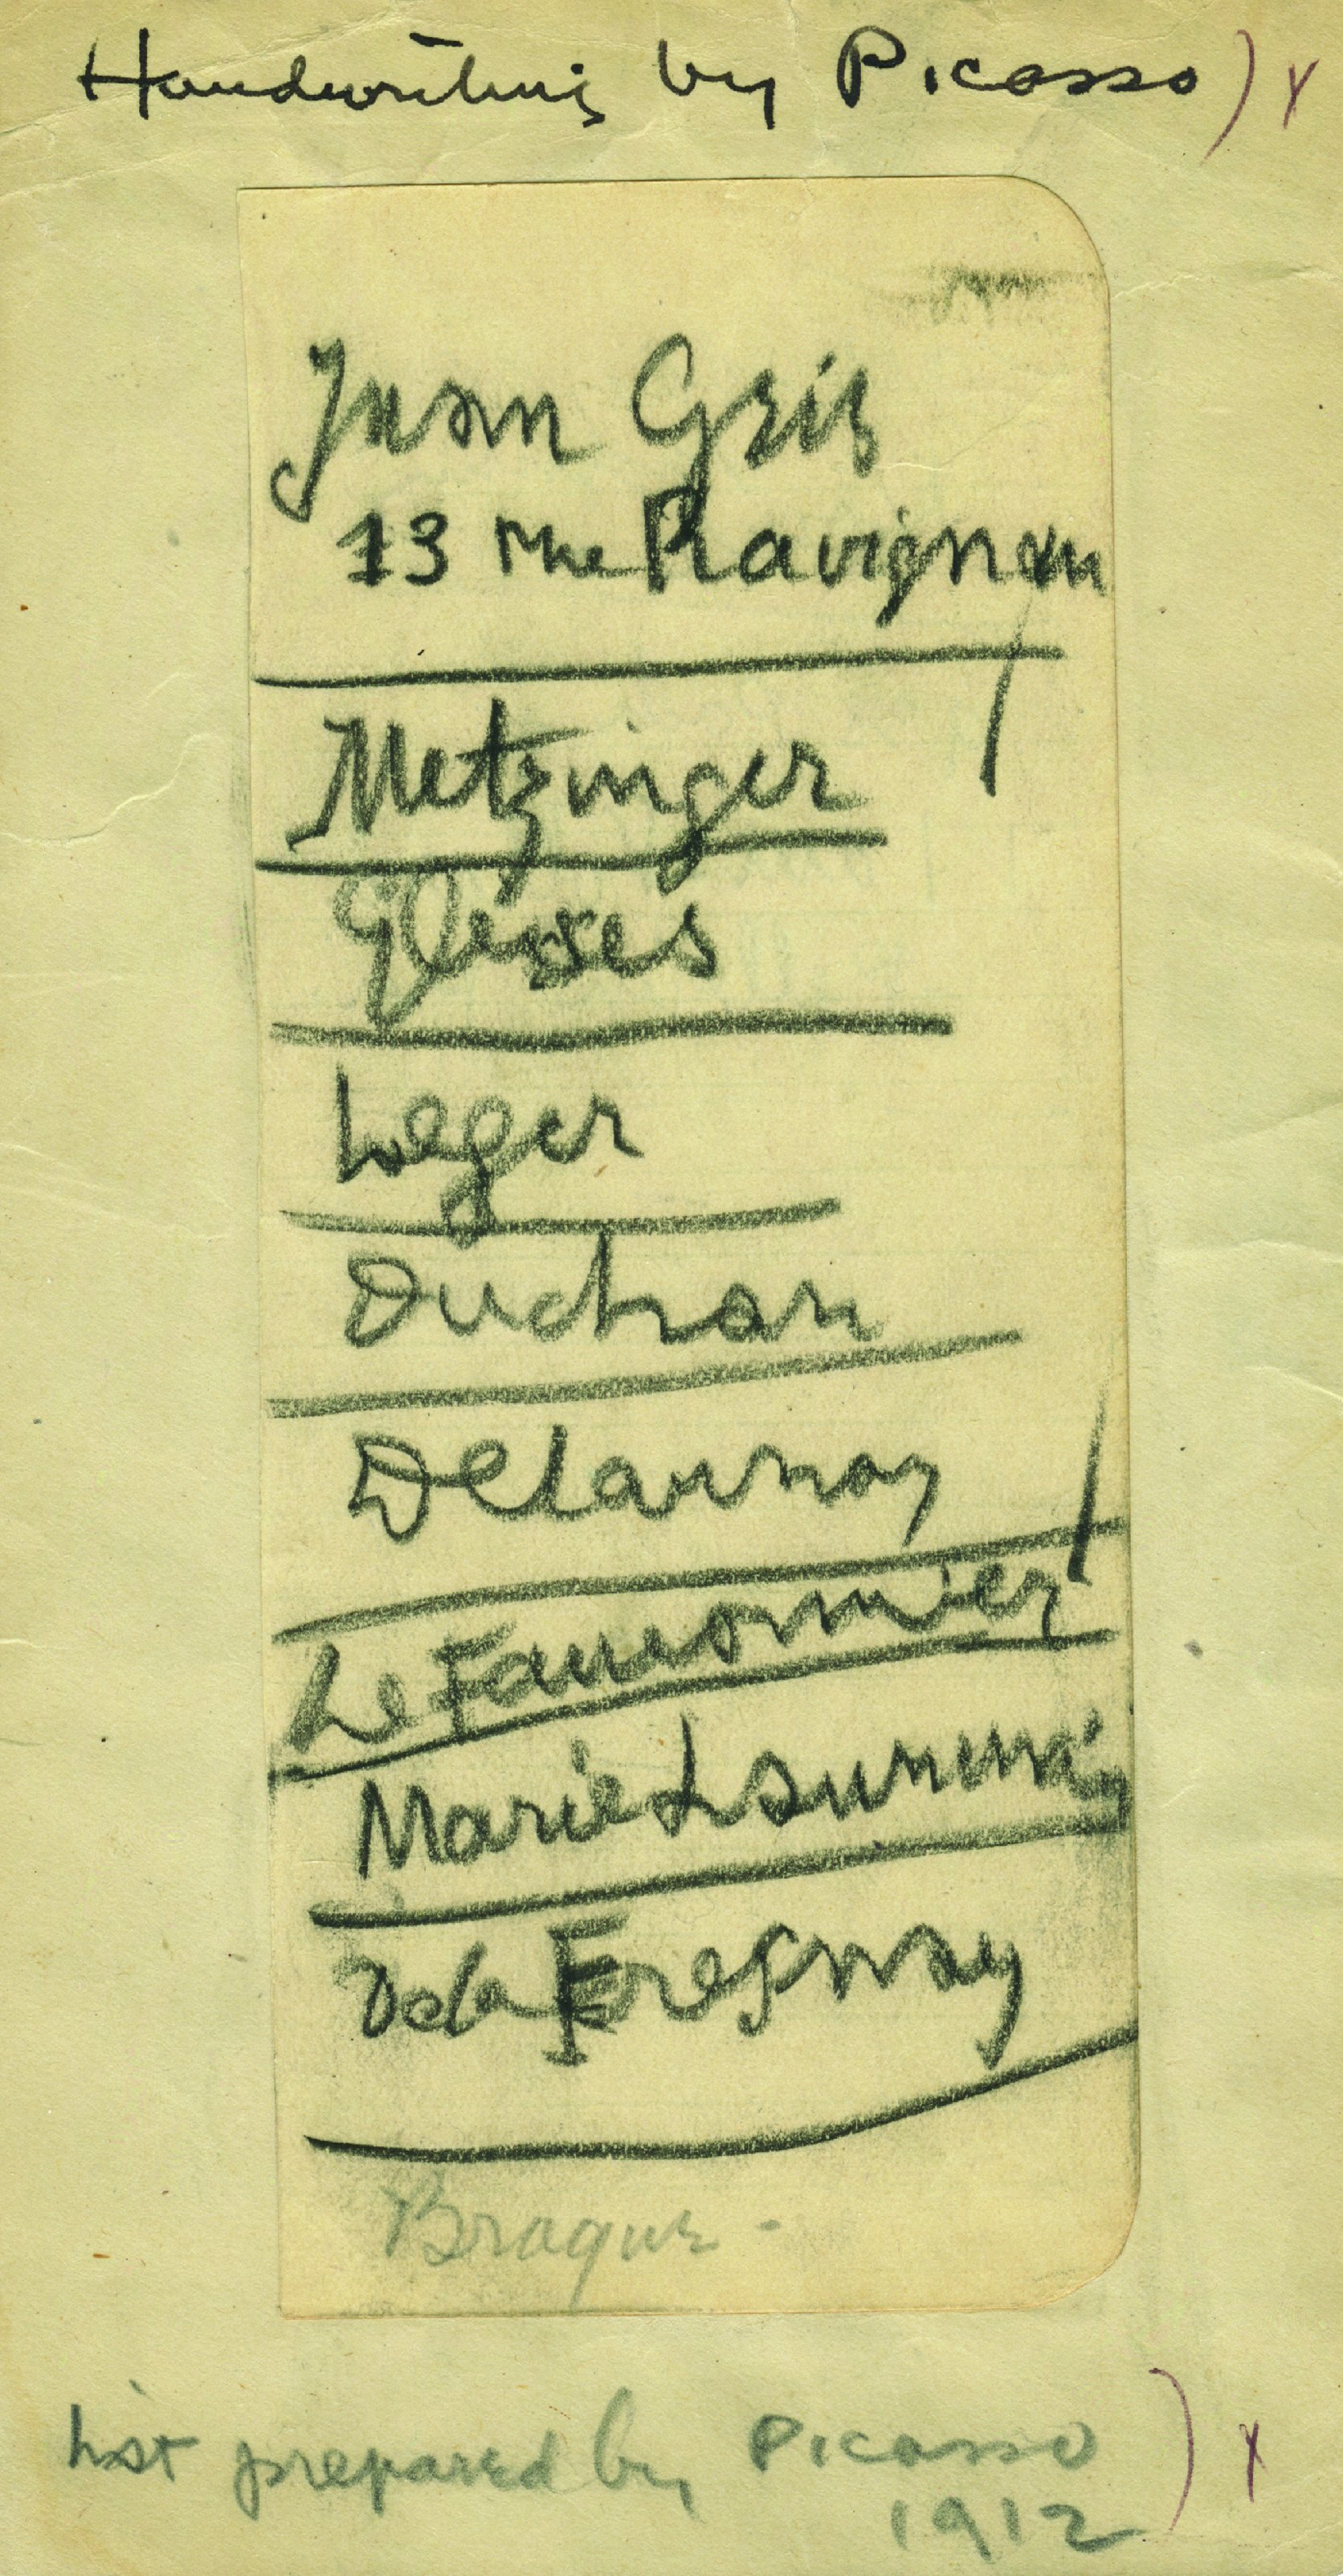 Handwriting by Picasso
Juan Gris
13 rue Ravignan
Metzinger
Gleises
Leger
Duchan
Delaunay
Le Fauconnier
Marie Laurencin
De la Fresnay
Braque -
List prepared by Picasso
1912